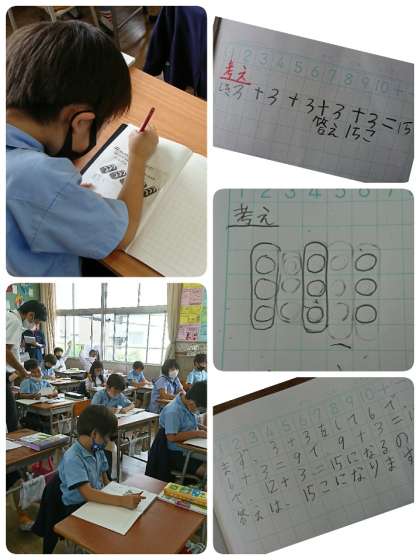 1 2 3 4 5 6 7 8 9 10 +
考え
しき3 + 3 + 3 + 3 + 3 = 15
答え 15こ
1 2 3 4 5 6 7
考え
1 2 3 4 5 6 7 8 9 10 +
まず、3 + 3をして6で
6 + 3 = 9で 9 + 3 = 1
で、12 + 3 = 15になるの
答えは、15こになります